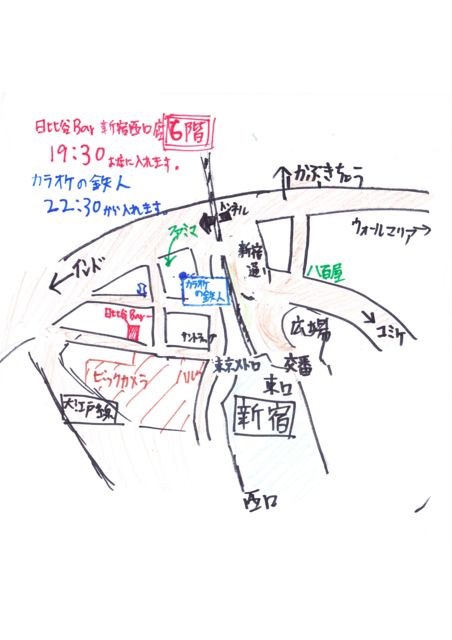 日比谷Bar 新宿西口店 6階
19:30 お店に入れます。
カラオケの鉄人
22:30から入れます。
かぶきちょう
トンネル
ウォールマリア
ファミマ
新宿通り
インド
八百屋
カラオケの鉄人
日比谷Bar
広場
コミケ
サントラップ
東京メトロ
交番
ビックカメラ
東口
大江戸線
新宿
西口